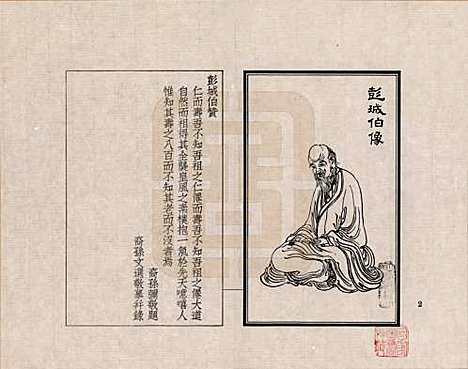 彭城伯像
2
彭城伯贊
仁而壽吾不知吾祖之仁僊而壽吾不知吾祖之僊大道
自然而祖得其全龔皇風之柔樸抱一氣於先天噫嘻人
惟知其壽之八百而不知其老而不沒者焉
裔孫彌敬題
裔孫文遠敬摹并錄